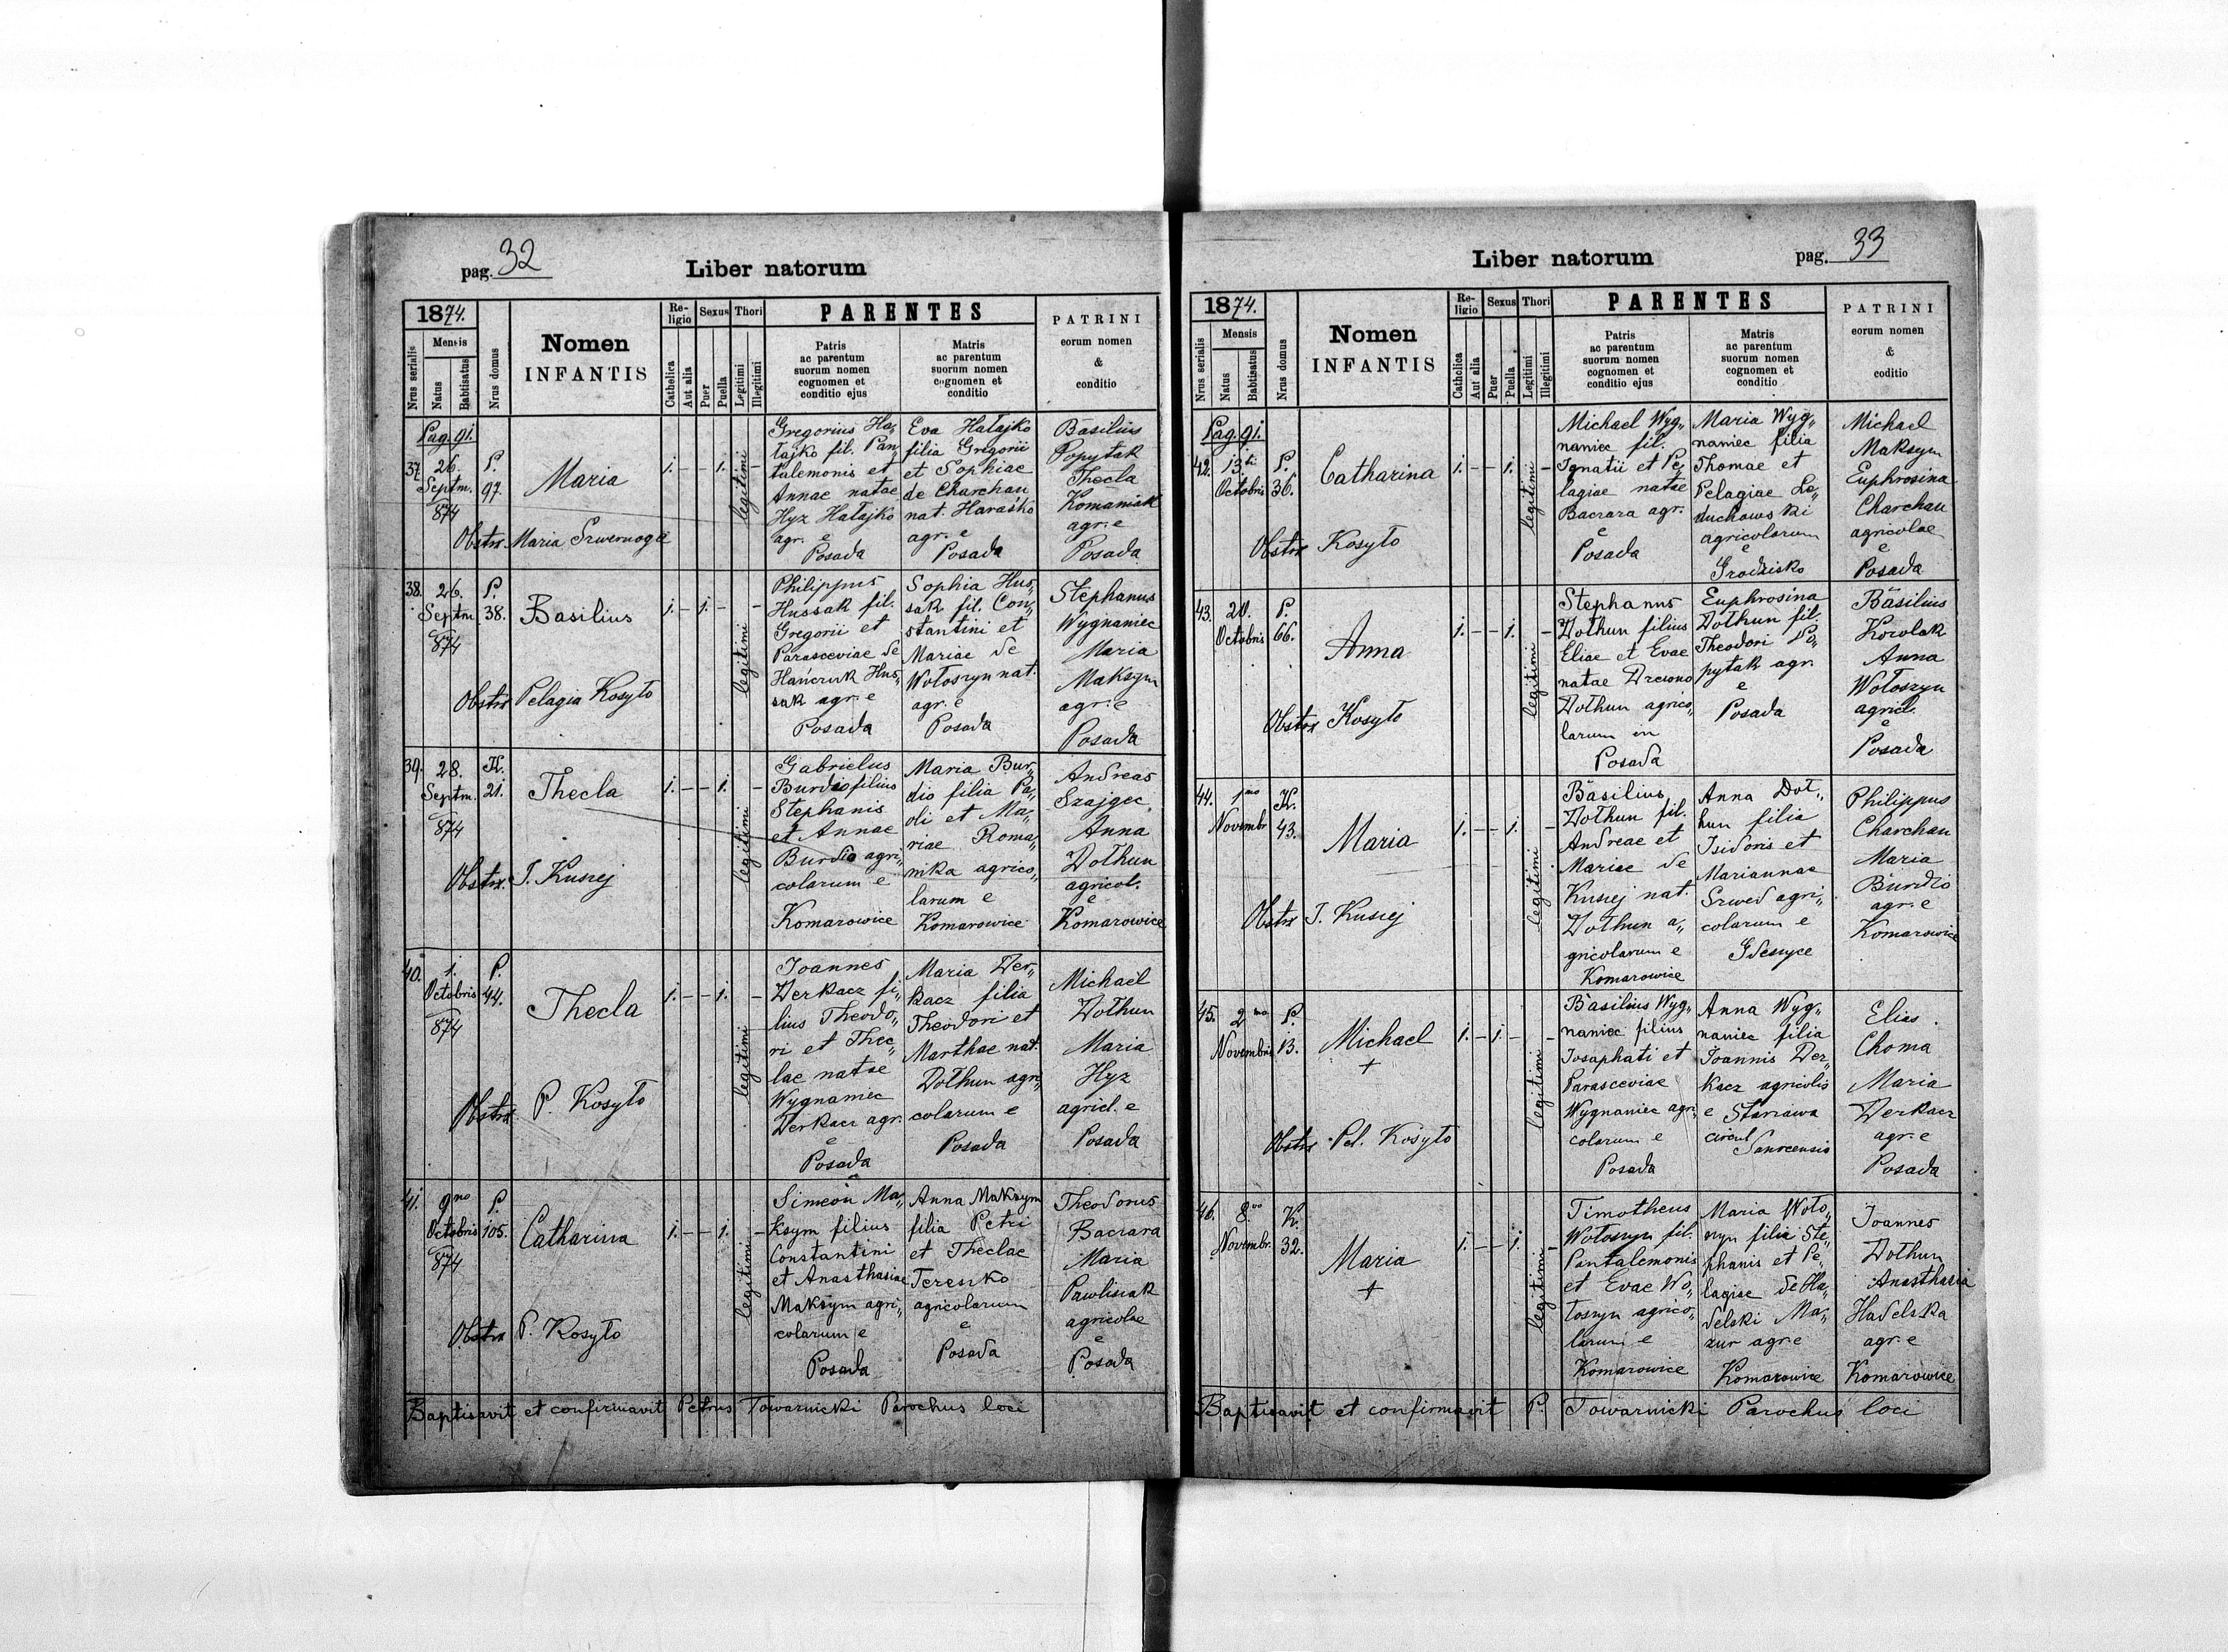 pag. 32
Liber natorum
1874.
Nrus serialis
Mensis
Natus
Babtisatus
Nrus domus
Nomen
INFANTIS
Re-
ligio
Catholica
Aut alia
Sexus
Puer
Puella
Thori
Legitimi
Illegitimi
PARENTES
Patris
ac parentum
suorum nomen
cognomen et
conditio ejus
Matris
ac parentum
suorum nomen
cognomen et
conditio
PATRINI
eorum nomen
&
conditio
Pag. 91.
37.
26.
Septm.
874
P.
97.
Maria
1. - - 1. -
legitimi
Obstrx. Maria Szwernoga
Gregorius Ha„
łajko fil. Pan„
talemonis et
Annae natae
Hyz Hałajko
agr. e
Posada
Eva Hałajko
filia Gregorii
et Sophiae
de Charchan
nat. Haraśko
agr. e
Posada
Basilius
Popytak
Thecla
Komaniak
agr. e
Posada
38.
26.
Septm.
874
P.
38.
Basilius
1. - 1. - -
legitimi
Obstrx Pelagia Kosyło
Philippus
Hussak fil.
Gregorii et
Parasceviae de
Hańczuk Hus„
sak agr. e
Posada
Sophia Hus„
sak fil. Con„
stantini et
Mariae de
Wołoszyn nat.
agr. e
Posada
Stephanus
Wygnaniec
Maria
Maksym
agr. e
Posada
39.
28.
Septm.
874
K.
21.
Thecla
1. - - 1. -
legitimi
Obstrx. T. Kusiej
Gabrielus
Burdio filius
Stephanis
et Annae
Burdio agri„
colarum e
Komarowice
Maria Bur„
dio filia Pa„
oli et Ma„
riae Roma„
nika agrico„
larum e
Komarowice
Andreas
Szajgec
Anna
Dołhun
agricol.
e
Komarowice
40.
1.
Octobris
874
P.
44.
Thecla
1. - - 1. -
legitimi
Obstrx. P. Kosyło
Joannes
Derkacz fi„
lius Theodo„
ri et Thec„
lae natae
Wygnaniec
Derkacz agr.
e
Posada
Maria Der„
kacz filia
Theodori et
Marthae nat.
Dołhun agri„
colarum e
Posada
Michael
Dołhun
Maria
Hyz
agricl. e
Posada
41.
9no
Octobris
874
P.
105.
Catharina
1. - - 1. -
legitimi
Obstrx P. Kosyło
Simeon Ma„
ksym filius
Constantini
et Anasthasiae
Maksym agri„
colarum e
Posada
Anna Maksym
filia Petri
et Theclae
Tereśko
agricolarum
e
Posada
Theodorus
Baczara
Maria
Pawlisiak
agricolae
e
Posada
Baptisavit et confirmavit Petrus Towarnicki Parochus loci
Liber natorum
pag. 33
1874.
Nrus serialis
Mensis
Natus
Babtisatus
Nrus domus
Nomen
INFANTIS
Re-
ligio
Catholica
Aut alia
Sexus
Puer
Puella
Thori
Legitimi
Illegitimi
PARENTES
Patris
ac parentum
suorum nomen
cognomen et
conditio ejus
Matris
ac parentum
suorum nomen
cognomen et
conditio
PATRINI
eorum nomen
&
coditio
Pag. 91.
42.
13ti
Octobris
P.
36.
Catharina
1. - - 1. -
legitimi
Obstrx Kosyło
Michael Wyg„
naniec fil.
Ignatii et Pe„
lagiae natae
Baczara agr.
e
Posada
Maria Wyg„
naniec filia
Thomae et
Pelagiae Le„
duchowski
agricolarum
e
Grodzisko
Michael
Maksym
Euphrosina
Charchan
agricolae
e
Posada
43.
20.
Octobris
P.
66.
Anna
1. - - 1. -
legitimi
Obstrx Kosyło
Stephanus
Dołhun filius
Eliae et Evae
natae
Dołhun agrico„
larum in
Posada
Euphrosina
Dołhun fil.
Theodori Po„
pytak agr.
e
Posada
Basilius
Korolak
Anna
Wołoszyn
agricl.
e
Posada
44.
1mo
Novembr
K.
43.
Maria
1. - - 1. -
legitimi
Obstrx T. Kusiej
Basilius
Dołhun fil.
Andreae et
Mariae de
Kusiej nat.
Dołhun a„
gricolarum e
Komarowice
Anna Doł„
hun filia
Isidoris et
Mariannae
Szwed agri„
colarum e
Gdeszyce
Philippus
Charchan
Maria
Burdio
agr. e
Komarowice
45.
2mo
Novembris
P.
13.
Michael
+
1. - 1. - -
legitimi
Obstrx Pel. Kosyło
Basilius Wyg„
naniec filius
Josaphati et
Parasceviae
Wygnaniec agri„
colarum e
Posada
Anna Wyg„
naniec filia
Joannis Der„
kacz agricolis
e Starzawa
circul
Sanocensis
Elias
Choma
Maria
Derkacz
agr. e
Posada
46.
8vo
Novembr.
K.
32.
Maria
+
1. - - 1. -
legitimi
Timotheus
Wołoszyn fil.
Pantalemonis
et Evae Wo„
łoszyn agrico„
larum e
Komarowice
Maria Woło„
szyn filia Ste„
phanis et Pe„
lagiae de Ha„
delski Ma„
zur agr e
Komarowice
Joannes
Dołhun
Anasthasia
Hadelska
agr. e
Komarowice
Baptisavit et confirmavit P. Towarnicki Parochus loci